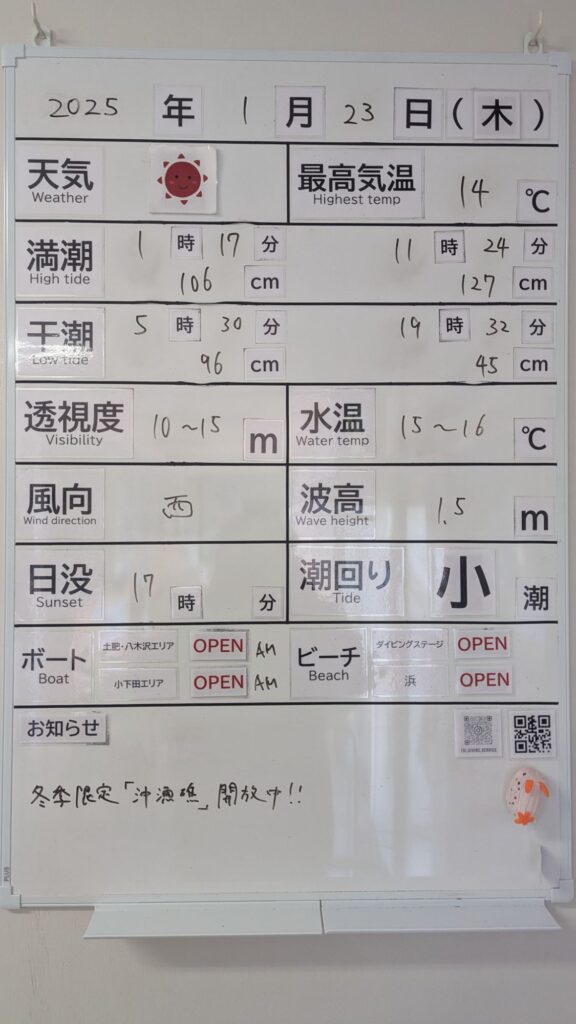 2025 年 1 月 23 日 (木)
天気 最高気温 14 ℃
Weather Highest temp
満潮 1 時 17 分 11 時 24 分
High tide 106 cm 127 cm
干潮 5 時 30 分 19 時 32 分
Low tide 96 cm 45 cm
透視度 10～15 m 水温 15～16 ℃
Visibility Water temp
風向 西 波高 1.5 m
Wind direction Wave height
日没 17 時 分 潮回り 小 潮
Sunset Tide
ボート 土肥・八木沢エリア OPEN AM ビーチ ダイビングステージ OPEN
Boat 小下田エリア OPEN AM Beach 浜 OPEN
お知らせ
冬季限定「沖漁礁」開放中!!
PLUS